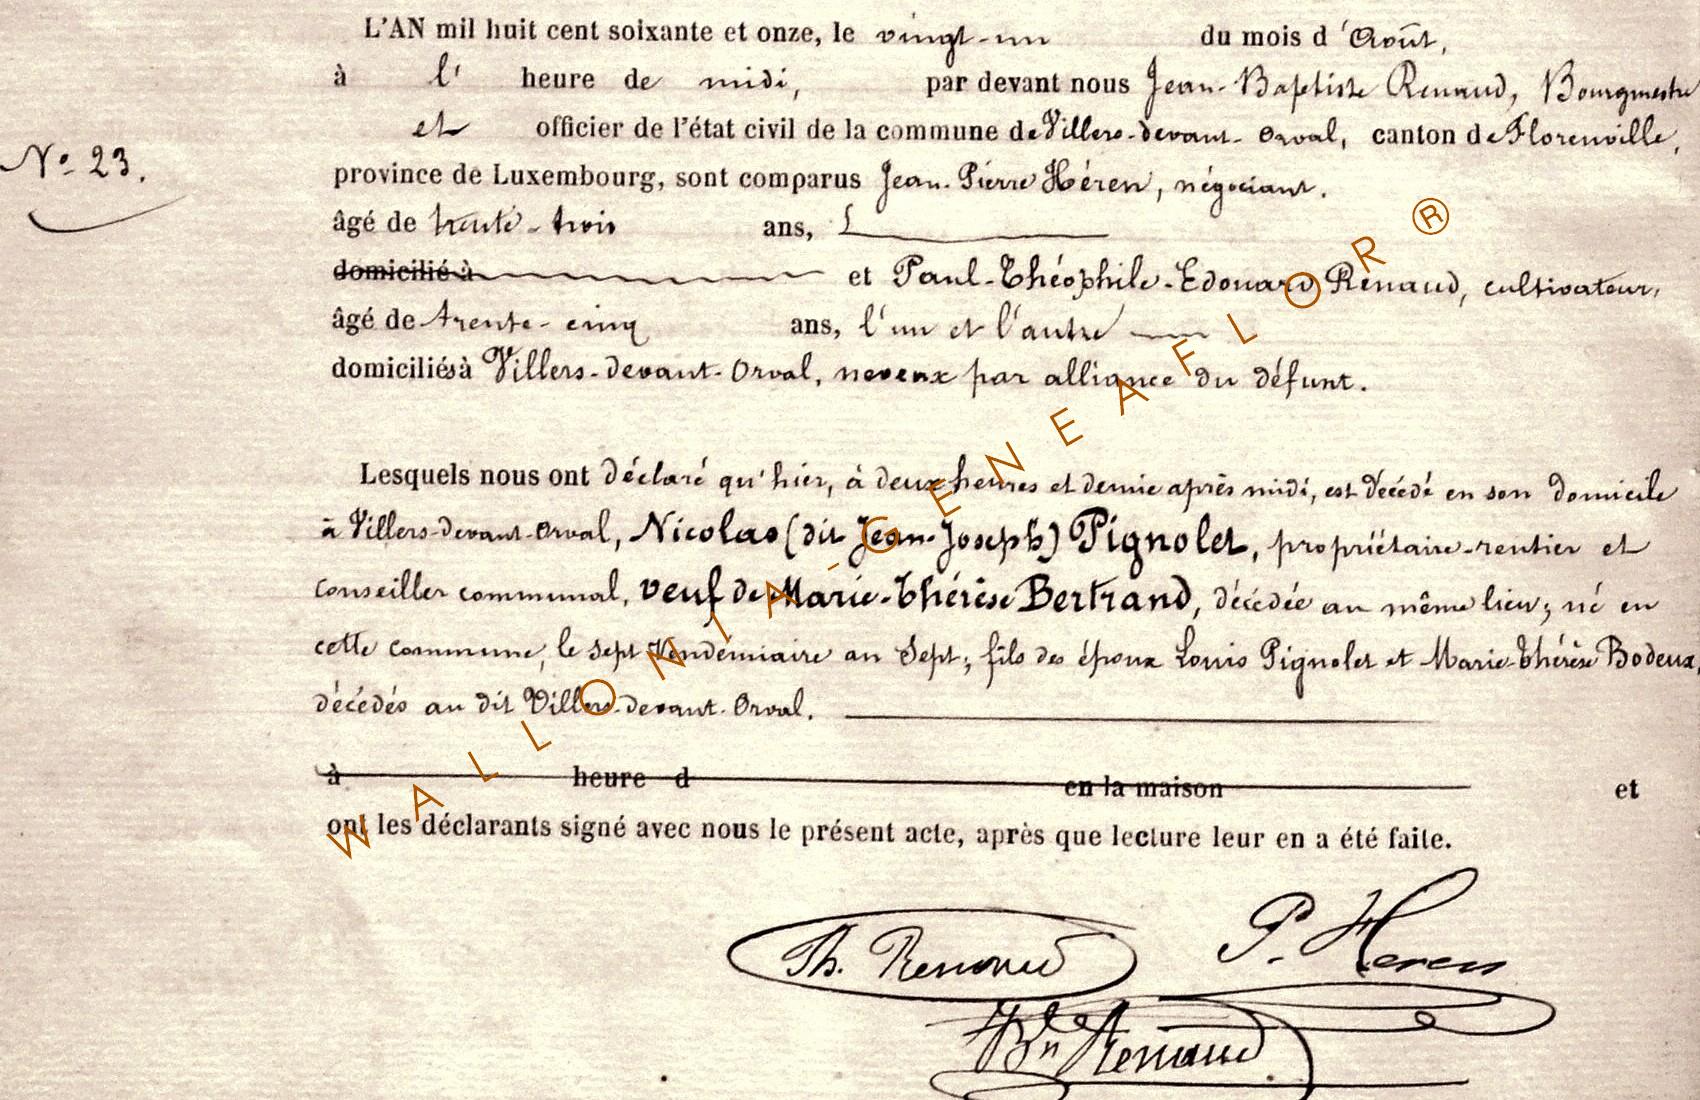 L'AN mil huit cent soixante et onze, le vingt-un du mois d'Août,
à l' heure de midi, par devant nous Jean-Baptiste Renaud, Bourgmestre
et officier de l'état civil de la commune de Villers-devant-Orval, canton de Florenville,
N° 23.
province de Luxembourg, sont comparus Jean-Pierre Héren, négociant.
âgé de trente-trois ans,
domicilié à et Paul-Théophile-Edouard Renaud, cultivateur,
âgé de trente-cinq ans, l'un et l'autre
domiciliés à Villers-devant-Orval, neveux par alliance du défunt.
Lesquels nous ont déclaré qu'hier, à deux heures et demie après midi, est décédé en son domicile
à Villers-devant-Orval, Nicolas (dit Jean-Joseph) Pignolet, propriétaire-rentier et
conseiller communal, veuf de Marie-Thérèse Bertrand, décédée au même lieu; né en
cette commune, le sept Vendémiaire an Sept; fils des époux Louis Pignolet et Marie-Thérèse Bodeux,
décédés au dit Villers-devant-Orval.
à heure d en la maison et
ont les déclarants signé avec nous le présent acte, après que lecture leur en a été faite.
Th. Renaud P. Heren
JBte Renaud
WALLONIA-GENEAFLOR®